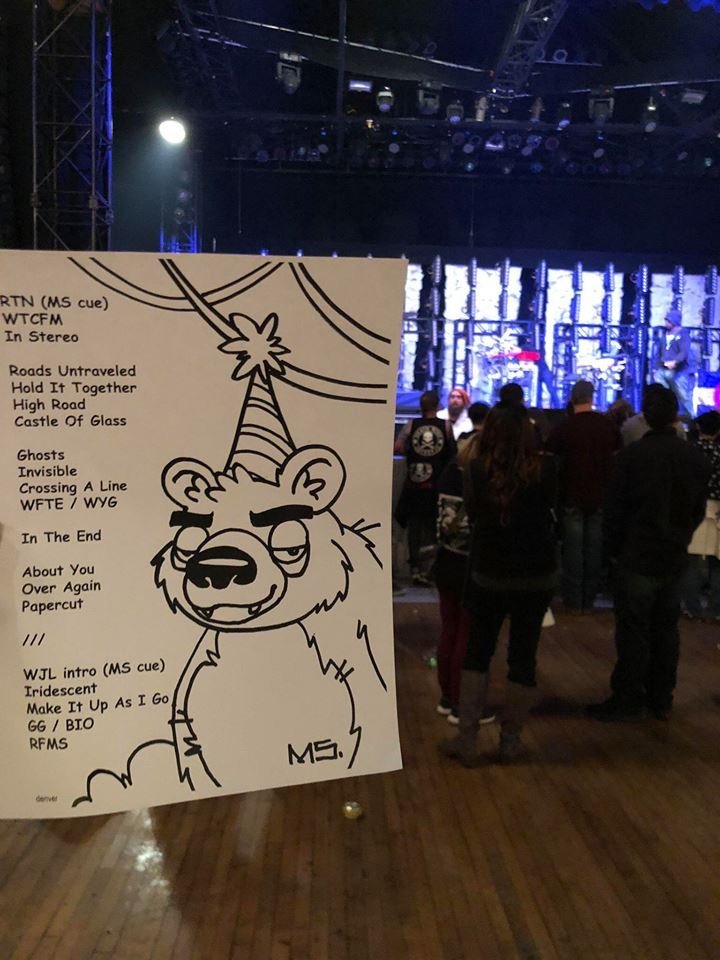 RTN (MS cue)
WTCFM
In Stereo
Roads Untraveled
Hold It Together
High Road
Castle Of Glass
Ghosts
Invisible
Crossing A Line
WFTE / WYG
In The End
About You
Over Again
Papercut
///
WJL intro (MS cue)
Iridescent
Make It Up As I Go
GG / BIO
RFMS
denver
MS.